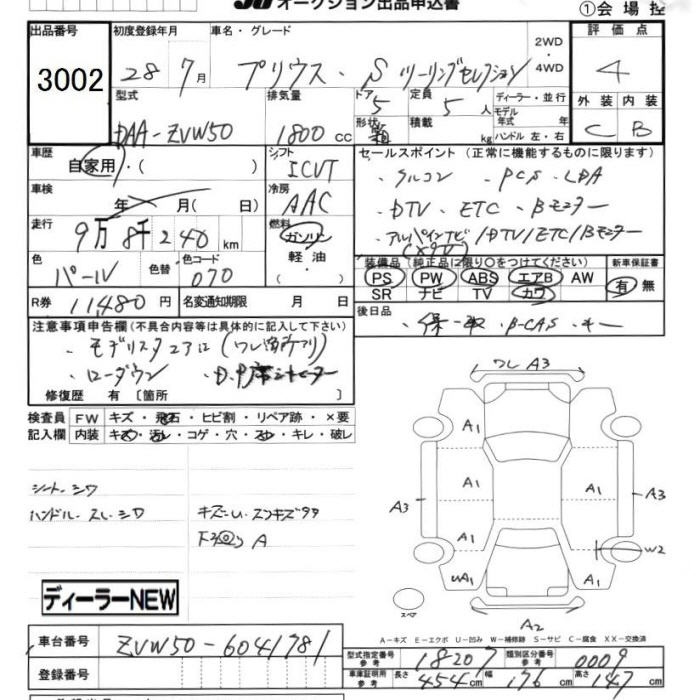 JU オークション出品申込書
①会場控
出品番号 初度登録年月 車名・グレード 評価点
3002 28年 7月 プリウス・Sツーリングセレクション 2WD・4WD 4
型式 排気量 ドア 定員 ディーラー・並行 外装 内装
DAA-ZVW50 1800cc 5 5人 モデル年式 年 C B
形状 積載 kg ハンドル 左・右
車歴 シフト セールスポイント(正常に機能するものに限ります)
自家用・( ) ICVT ・クルコン ・PCS ・LDA
車検 年 月(日) 冷房 AAC ・DTV ・ETC ・Bモニター
走行 9万8千240km 燃料 ガソリン 軽油 ( ) ・アルパインナビ/DTV/ETC/Bモニター
色 パール 色替 色コード 070
装備品(純正品に限り○をつけてください) 新車保証書
PS PW ABS エアB AW 有・無
SR ナビ TV カワ
R券 11,480円 名変通知期限 月 日
後日品 ・保 ・取 ・B-CAS ・キー
注意事項申告欄(不具合内容等は具体的に記入して下さい)
・モデリスタエアロ(ワレ箇所アリ)
・ローダウン
修復歴 有 〔箇所 〕
検査員 FW キズ・飛石・ヒビ割・リペア跡・×要
記入欄 内装 キズ・汚れ・コゲ・穴・スレ・キレ・破レ
シート・シワ
ハンドル・スレ・シワ キズ
A
ワレ A3
A1
A1 A1
A3 A3
A1 A1 W2
UA1 A1
スペア
A2
ディーラーNEW
A-キズ E-エクボ U-凹み W-補修跡 S-サビ C-腐食 XX-交換済
車台番号 ZVW50-6041781
型式指定番号 参考 18207 類別区分番号 参考 0009
登録番号
車庫証明用 参考 長さ 454cm 幅 176cm 高さ 147cm